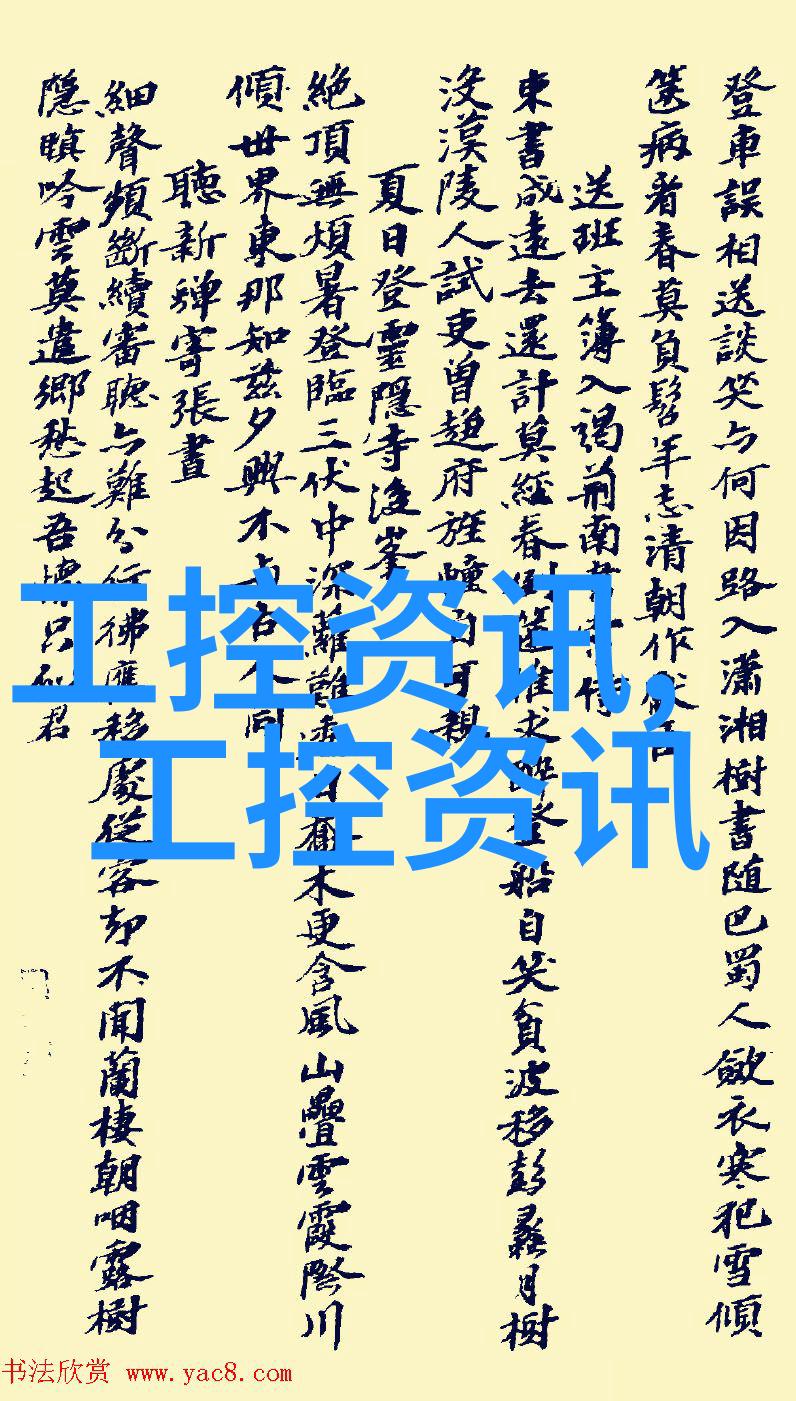 登車誤相送談笑亦何因路入瀟湘樹書隨巴蜀人斂衣寒犯雪傾
篋病看春莫負髫年志清朝作獻言
送班主簿入謁荊南
東書成遠去還計莫經春倒篋唯求醉登船自笑貧波移彭蠡月樹
沒漢陵人試吏曾趨府旌幢自可親
夏日登靈隱寺後峯
絕頂無煩暑登臨三伏中深蘿難透日喬木更含風山疊雲霞際川
傾世界東那知茲夕興不與古人同
聽新蟬寄張晝
細聲頻斷續審聽亦難分彷彿應移處從容却不聞蘭棲朝咽露樹
隱瞑吟雲莫遣鄉愁起吾懷只似君
工控资讯,
工控资讯
书法欣赏 www.yac8.com